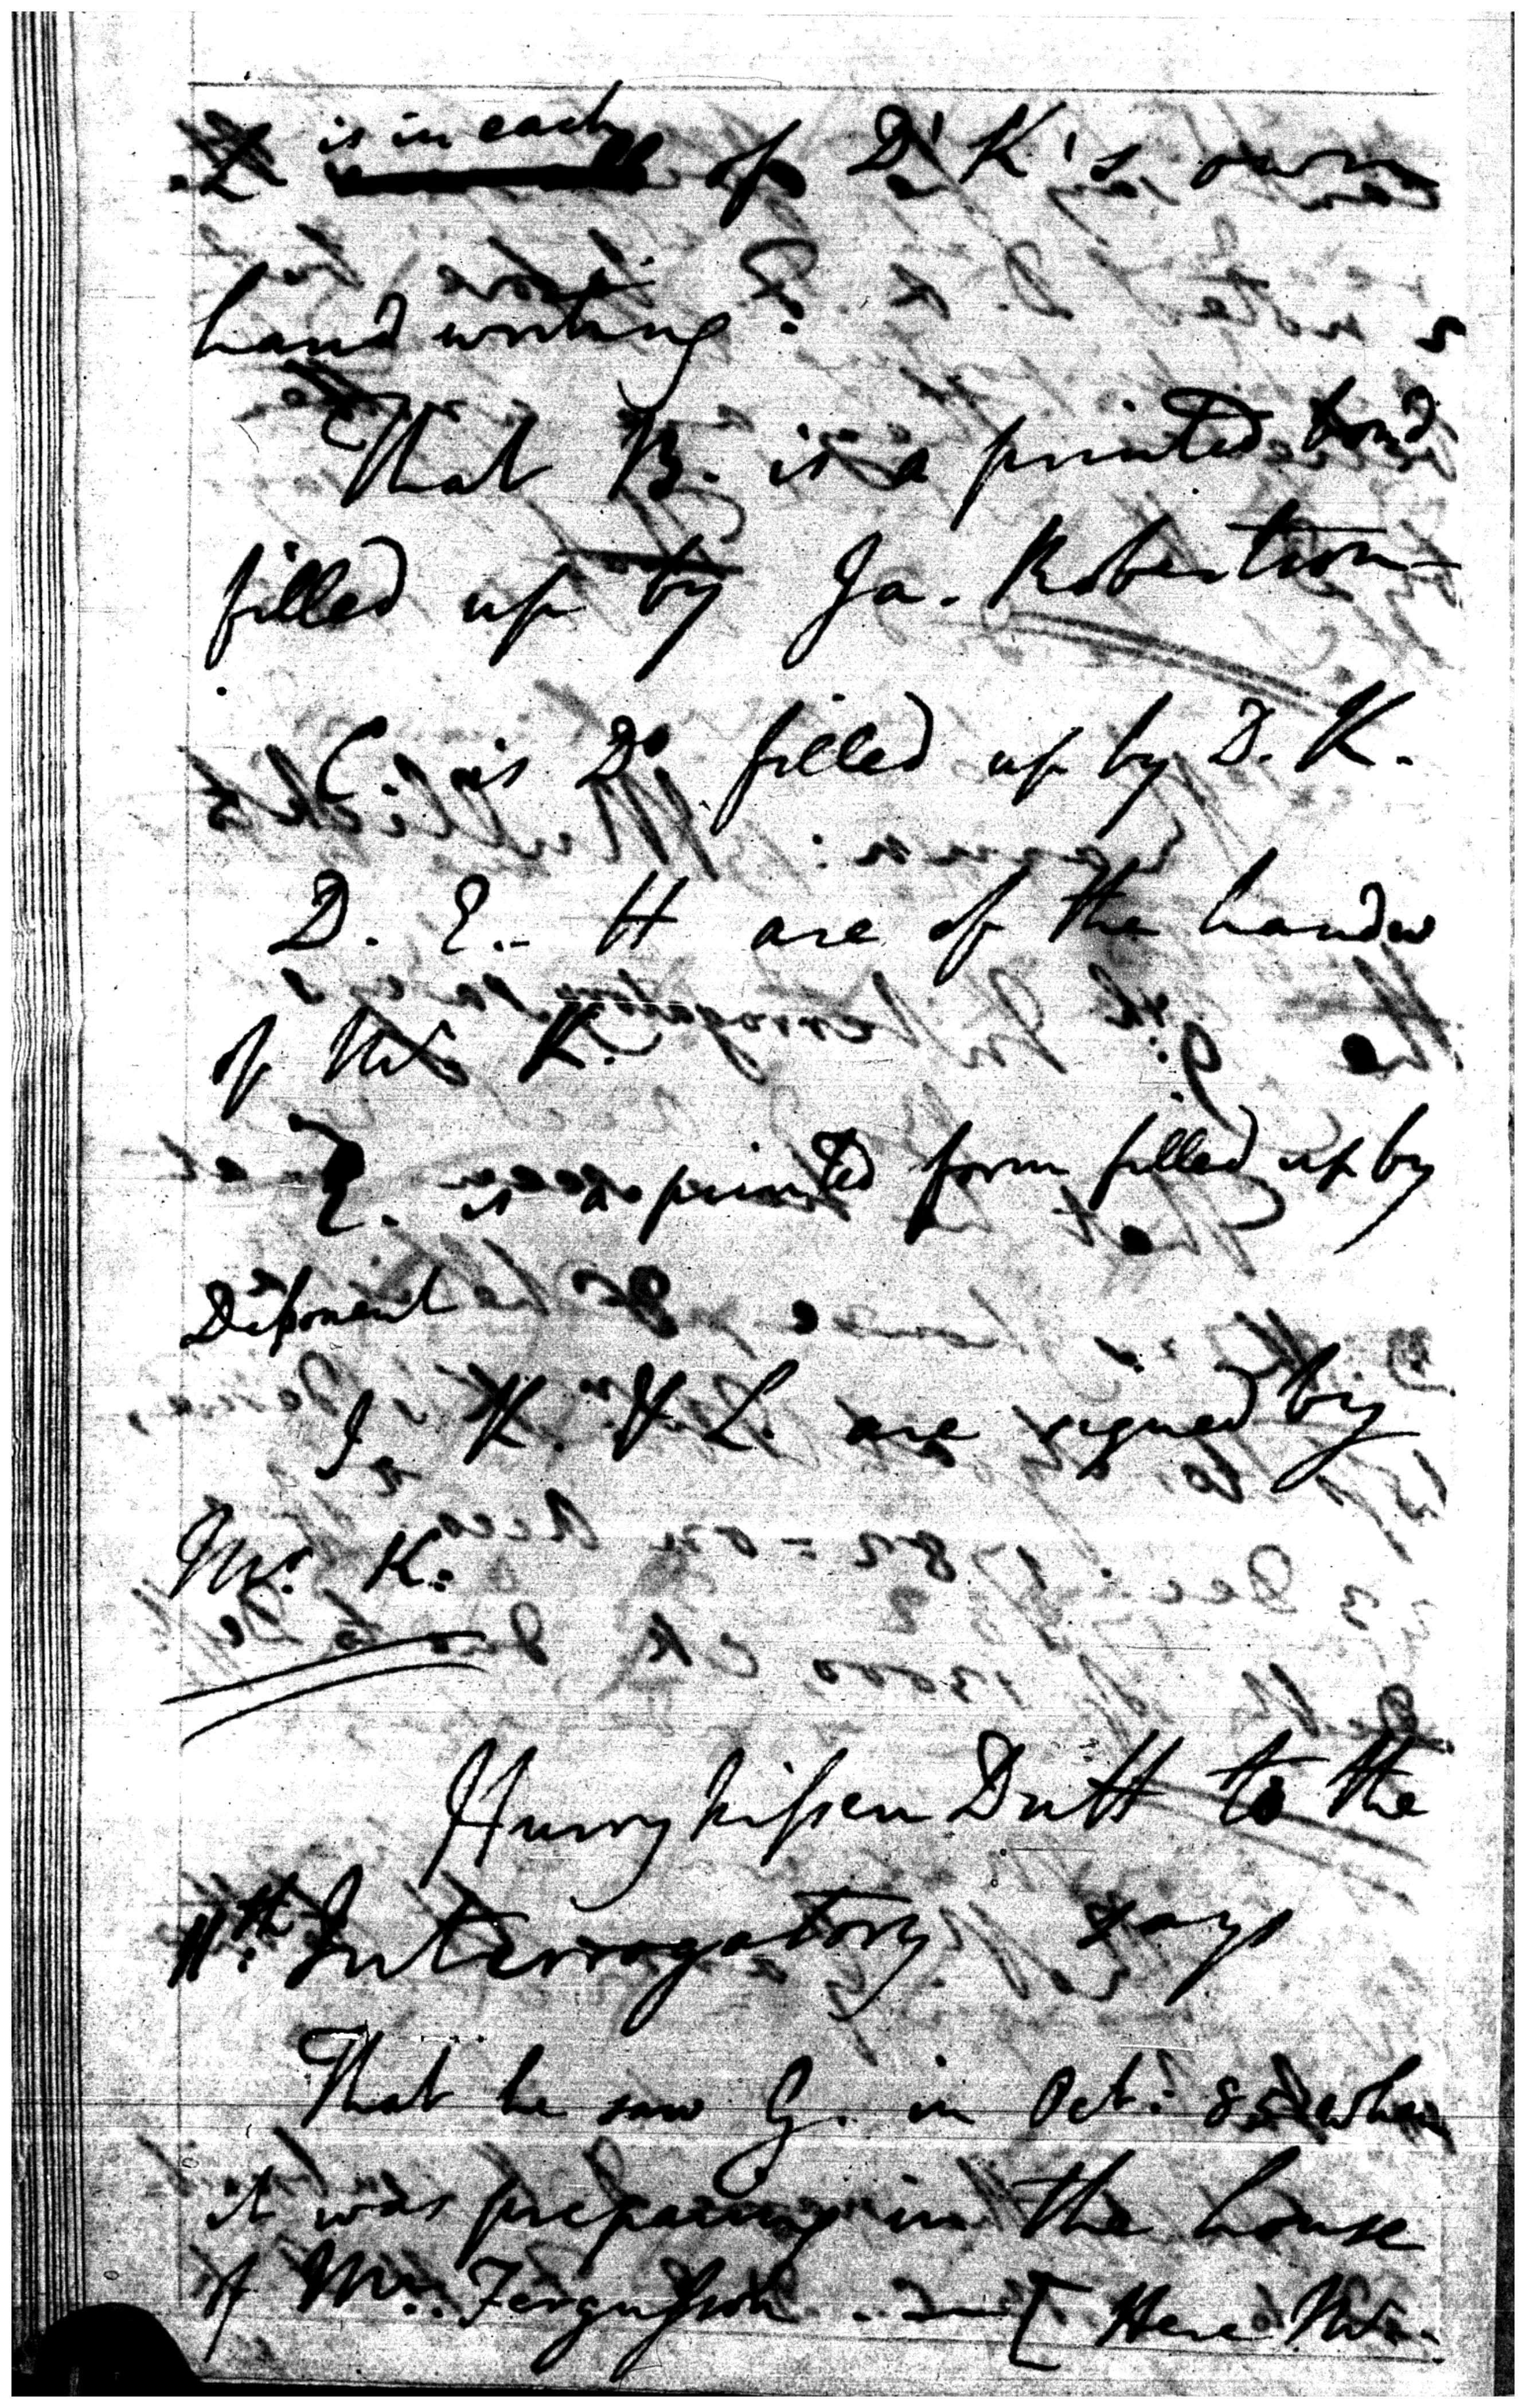 L is in each of D. K's own
hand writing.
That B. is a printed bond
filled up by Ja. Robertson
C. is Do filled up by D. K.
D. E. - H are of the handw
of Mr K.
is a printed form filled up by
Deponent
I K. & L. are signed by
Mr. K.
Hurrykissen Dutt to the
11th. Interrogatory says
That he saw G. in Oct: 85 when
it was preparing in the house
of Mr. Fergusson - [ Here Mr.